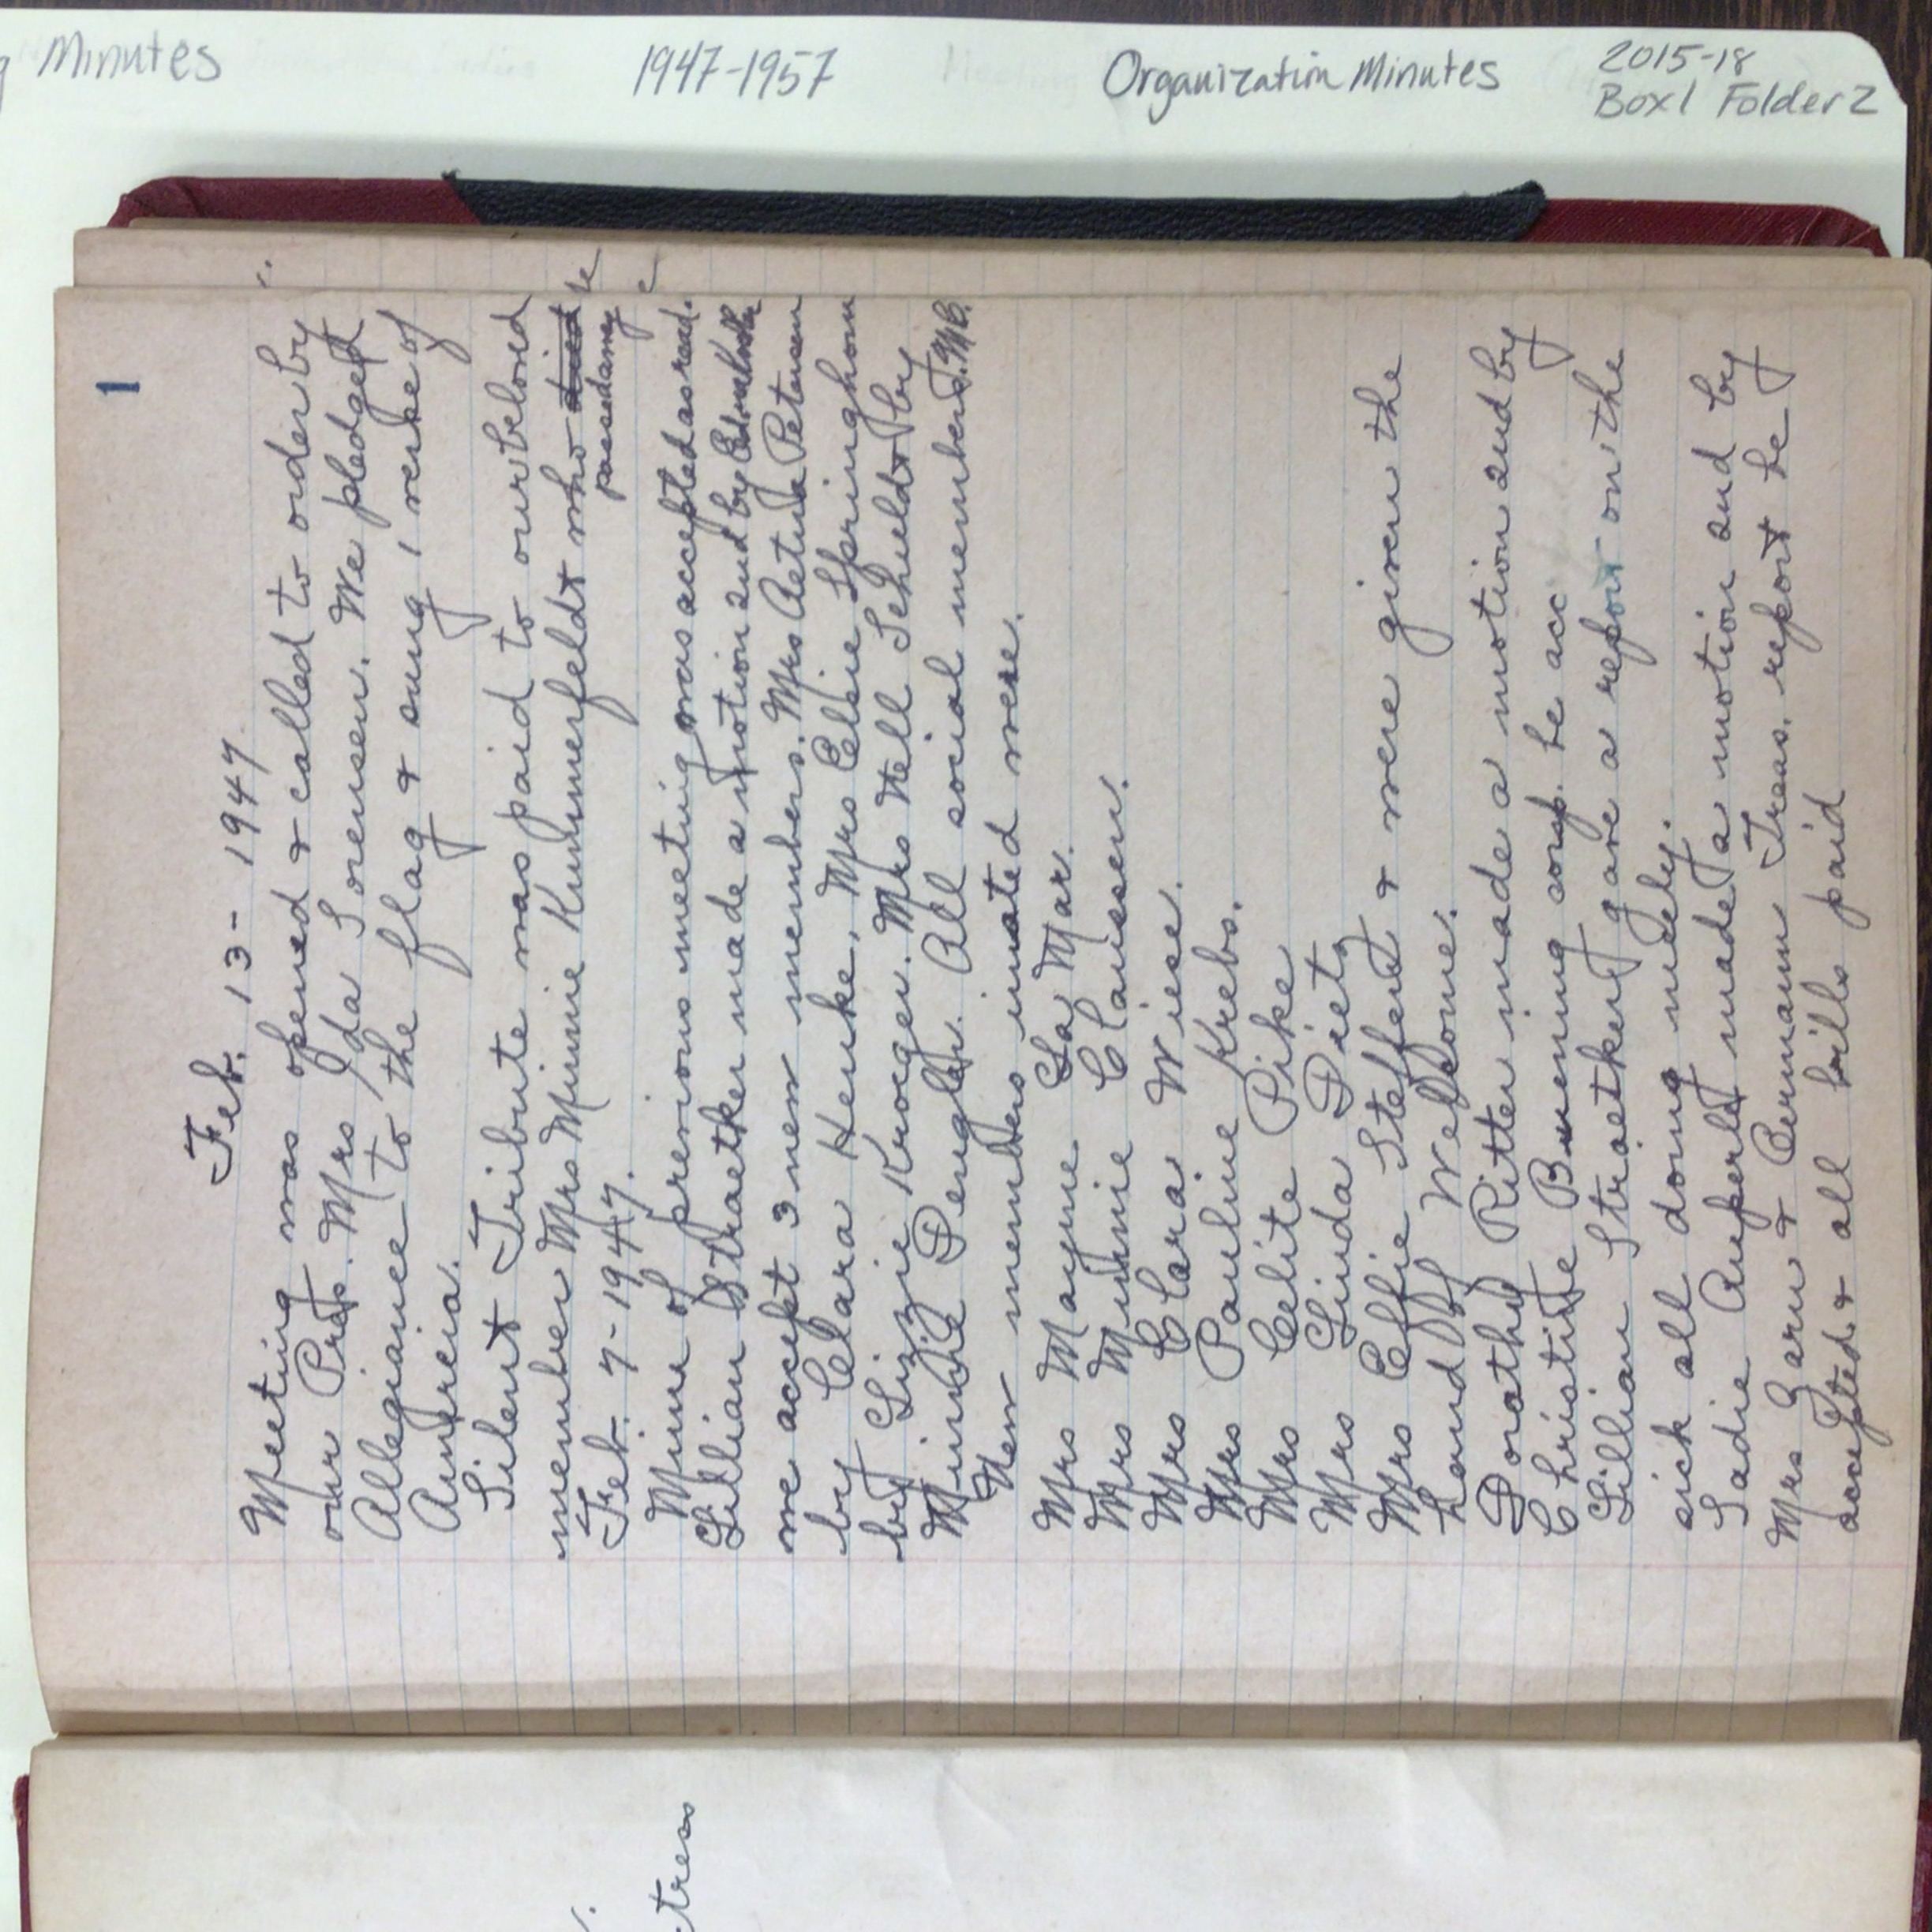 Minutes 1947-1957 Organization Minutes 2015-18
Box 1 Folder 2
1
Feb. 13 - 1947
Meeting was opened & called to order by
our Pres. Mrs Ida Sorensen. We pledged
Allegiance to the flag & sung, 1 verse of
America.
Silent Tribute was paid to our beloved
member Mrs Minnie Kummerfeldt who died
passed away
Feb. 7 - 1947.
Minu of previous meeting was accepted as read.
Lillian Straetker made a motion 2nd by
we accept 3 new members. Mrs Petersen
by Clara Henke, Mrs Elsie Springhorn
by Lizzie Kroeger. Mrs Nell Schuldt by
Minnie Dengler. All social members.
New members iniated were.
Mrs Mayme La Mar.
Mrs Minnie Claussen.
Mrs Clara Wiese.
Mrs Pauline Krebs.
Mrs Celite Pike
Mrs Linda Dietz
Mrs Effie Steffen & were given the
hand of Welcome.
Dorothy Ritter made a motion 2nd by
Christine Buening corsp. be acc
Lillian Straetker gave a report on the
sick all doing nicely.
Sadie Auperle made a motion 2nd by
Mrs Garn & Bermann Treas. report be
accepted & all bills paid
ctress